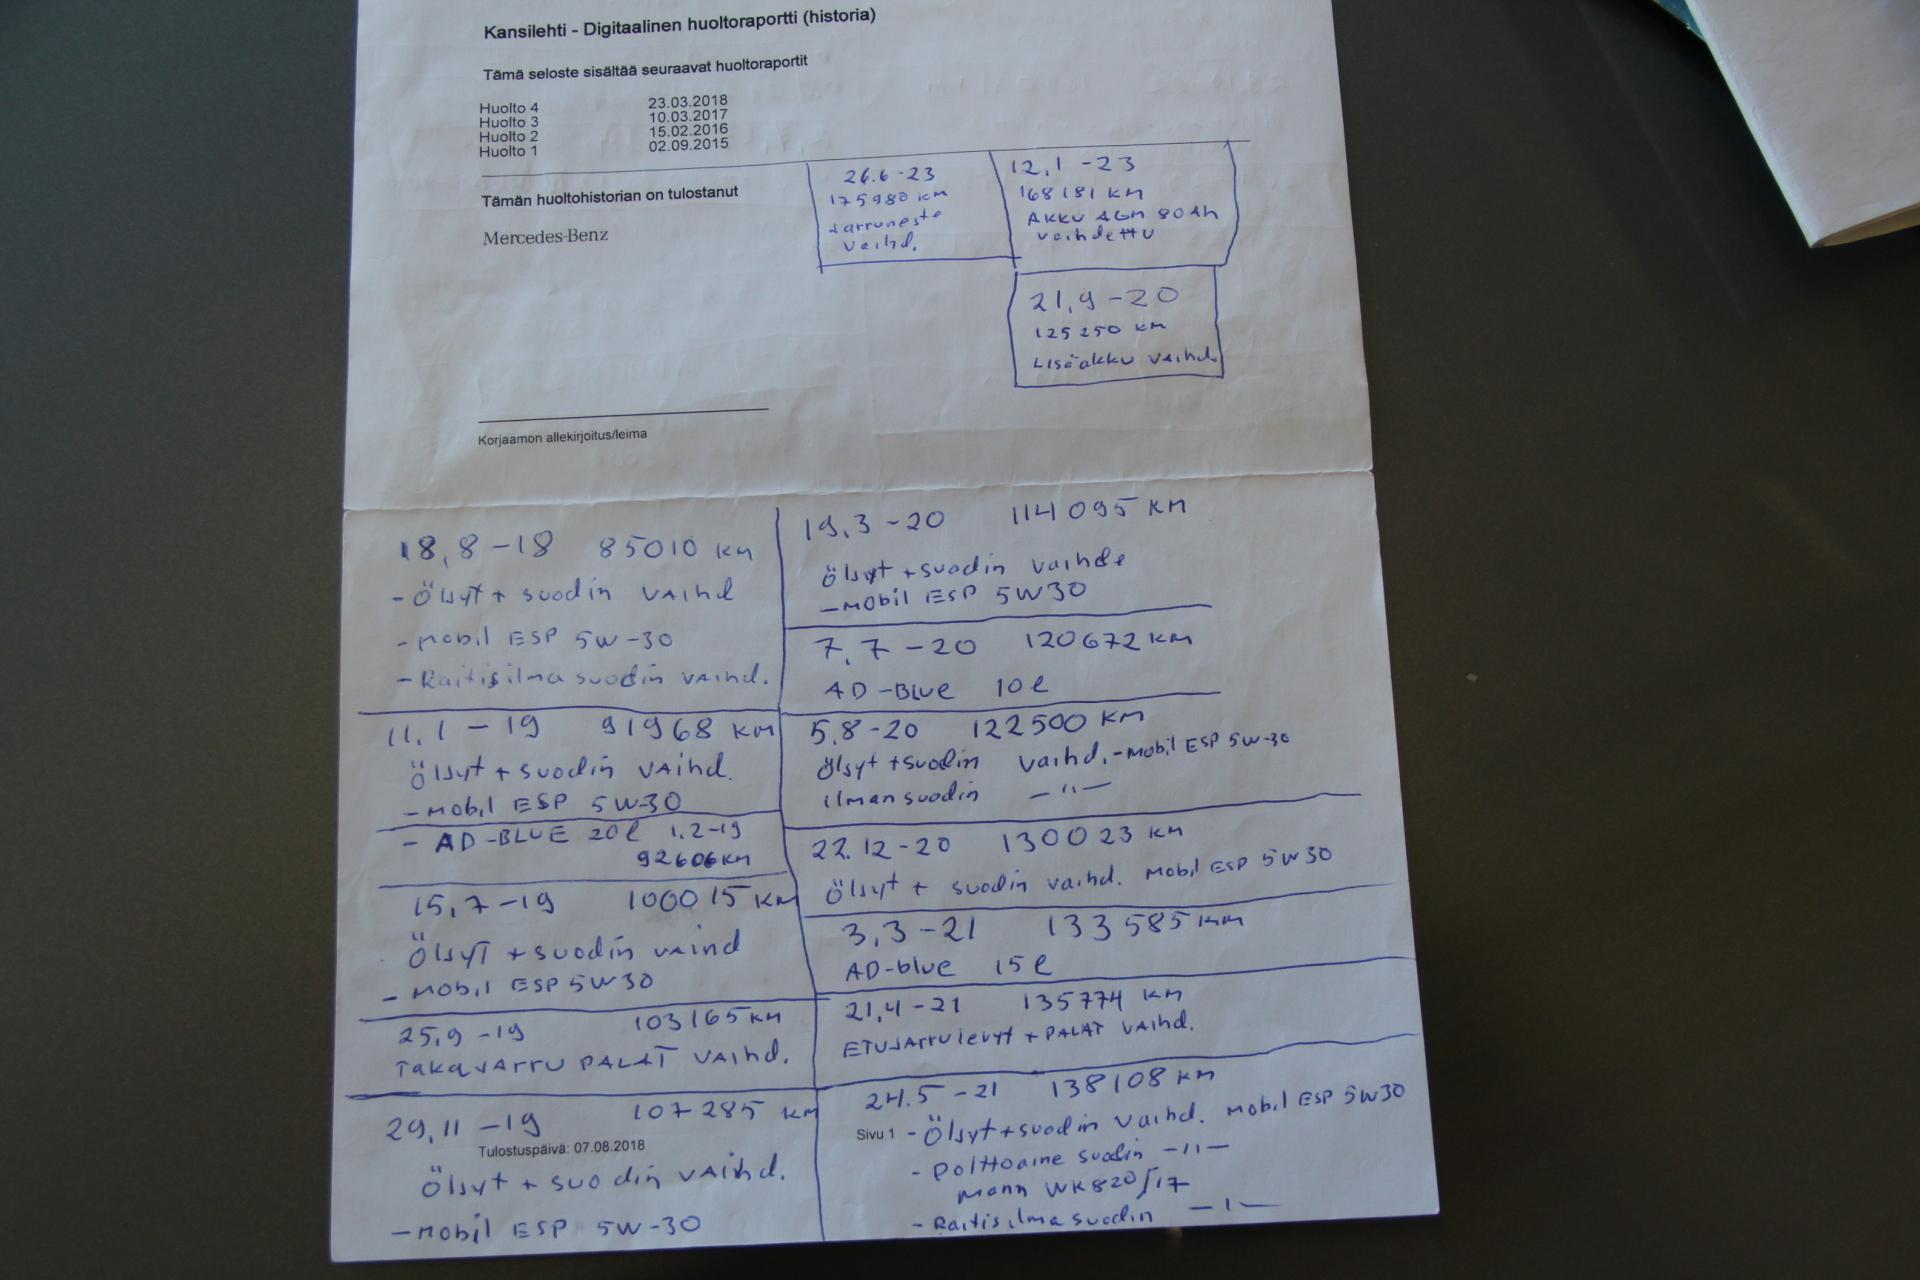 Kansilehti - Digitaalinen huoltoraportti (historia)
Tämä seloste sisältää seuraavat huoltoraportit
Huolto 4 23.03.2018
Huolto 3 10.03.2017
Huolto 2 15.02.2016
Huolto 1 02.09.2015
Tämän huoltohistorian on tulostanut
Mercedes-Benz
26.6-23
175980 KM
Jarruneste
Vaihd.
12,1 -23
168181 KM
AKKU AGM 80Ah
vaihdettu
21,9-20
125250 KM
Lisäakku vaihd.
Korjaamon allekirjoitus/leima
18,8-18 85010 KM
- Öljyt + suodin vaihd
- Mobil ESP 5W-30
- Raitisilmasuodin vaihd.
11,1-19 91968 KM
Öljyt + suodin vaihd.
- Mobil ESP 5W-30
- AD-BLUE 20l 1,2-19
92606 KM
15,7-19 100015 KM
Öljyt + suodin vaihd
- Mobil ESP 5W30
25,9-19 103165 KM
Takajarru PALAT vaihd.
29,11-19 107285 KM
Tulostuspäivä: 07.08.2018
Öljyt + suodin vaihd.
- Mobil ESP 5W-30
19,3-20 114095 KM
Öljyt + suodin vaihde
- Mobil ESP 5W30
7,7-20 120672 KM
AD-Blue 10l
5,8-20 122500 KM
Öljyt + suodin vaihd. - Mobil ESP 5W-30
Ilmansuodin -"-
22.12-20 130023 KM
Öljyt + suodin vaihd. Mobil ESP 5W30
3,3-21 133585 KM
AD-blue 15l
21,4-21 135774 KM
ETUJArrulevyt + PALAT vaihd.
24.5-21 138108 KM
Sivu 1 - Öljyt + suodin vaihd. Mobil ESP 5W30
- Polttoaine suodin -"-
Mann WK820/17
- Raitisilmasuodin -"-